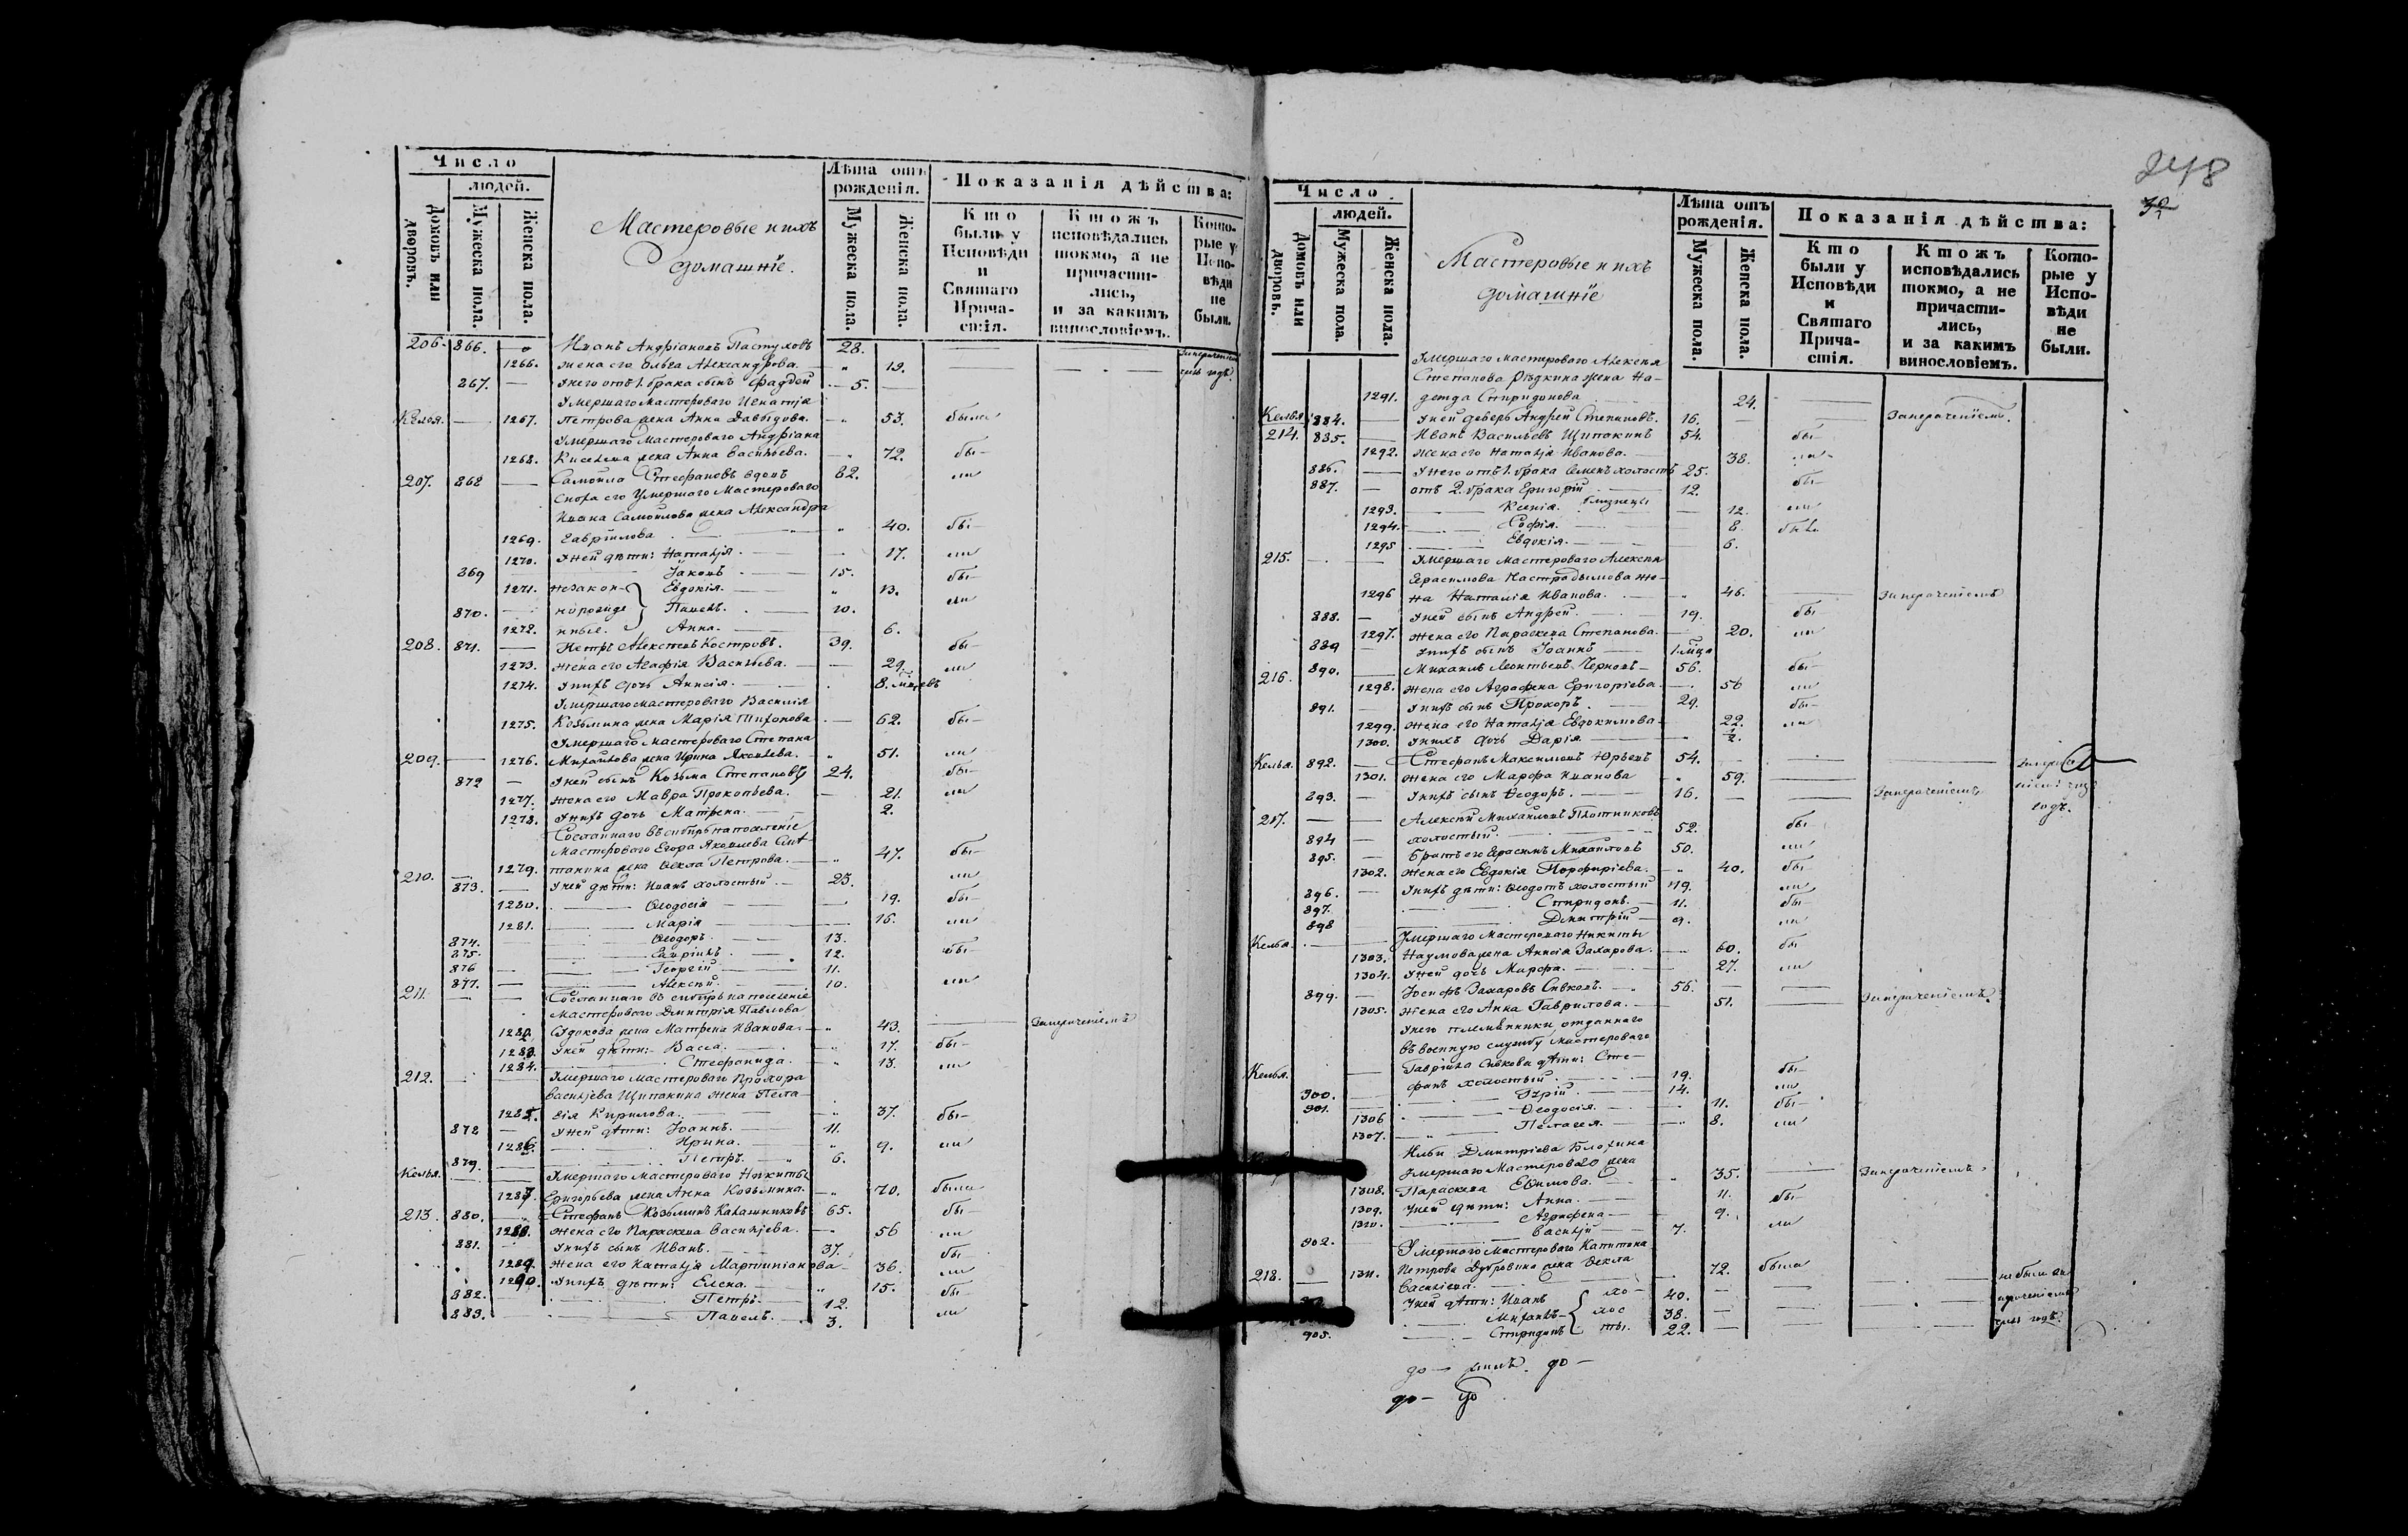 Число
людей.
Домовъ или дворовъ.
Мужеска пола.
Женска пола.
Мастеровые и ихъ
домашнїе.
Лѣта отъ
рожденія.
Мужеска пола.
Женска пола.
Показанія дѣйства:
Кто были у Исповѣди и Святаго Причастія.
Ктожъ исповѣдались токмо, а не причастились, и за какимъ винословіемъ.
Которые у Исповѣди не были.
206. 866. Иванъ Андріановъ Пастуховъ 28.
1266. жена его Ольга Александрова. 19.
867. У него отъ 1. брака сынъ Фаддей 5.
Умершаго мастероваго Игнатія
Келья. 1267. Петрова жена Анна Давыдова. 53. была
Умершаго Мастероваго Андріана
1268. Киселева жена Анна Васильева. 72. бы
207. 868 Самоила Стефановъ вдовъ 82. ли
Сноха его Умершаго Мастероваго
Ивана Самойлова жена Александра
1269. Гавріилова 40. бы
1270. У ней дѣти: Наталія 17. ли
869 Іаковъ 15. бы
1271. незакон- Евдокія. 13.
870. норожде Павелъ. 10. ли
1272. нные. Анна. 6.
208. 871. Петръ Алексѣевъ Костровъ. 39. бы
1273. жена его Агафія Васильева. 29. ли
1274. У нихъ дочь Анисія. 8. мѣсяцевъ
Умершаго мастероваго Василія
1275. Козьмина жена Марія Тихонова 62. бы
Умершаго Мастероваго Степана
209. 1276. Михайлова жена Ирина Яковлева. 51. ли
872 У ней сынъ Козьма Степановъ 24. бы
1277. жена его Мавра Прокопьева. 21. ли
1278. У нихъ дочь Матрена. 2.
Сосланнаго въ сибирь на поселеніе
Мастероваго Егора Яковлева
210. 1279. жена Ѳекла Петрова. 47. бы
873. У ней дѣти: Иванъ холостый. 25. ли
1280. Ѳеодосія 19. бы
1281. Марія 16. ли
874. Ѳеодоръ. 13.
875. Гавріилъ 12. бы
876 Георгій 11.
877. Алексѣй. 10. ли
211. Сосланнаго въ сибирь на поселеніе
Мастероваго Дмитрія Павлова
1282. Судокова жена Матрена Иванова. 43. За нерачениемъ
1283. У ней дѣти: Васса. 17. бы
1284. Стефанида. 13. ли
212. Умершаго Мастероваго Прохора
Васильева Щипакина жена Пела-
1285. гія Кирилова. 37. бы
878 У ней дѣти: Іоаннъ. 11.
1286. Ирина. 9. ли
879. Петръ. 6.
Келья. Умершаго Мастероваго Никиты
1287. Григорьева жена Анна Козьмина. 70. была
213. 880. Стефанъ Козьминъ Калашниковъ 65. бы
1288. Жена его Параскева Васильева. 56 ли
881. У нихъ сынъ Иванъ. 37. бы
1289. Жена его Наталія Мартиніанова 36. ли
1290. У нихъ дѣти: Елена. 15. бы
882. Петръ. 12.
883. Павелъ. 3. ли
248
Число
людей.
Домовъ или дворовъ.
Мужеска пола.
Женска пола.
Мастеровые и ихъ
домашнїе
Лѣта отъ
рожденія.
Мужеска пола.
Женска пола.
Показанія дѣйства:
Кто были у Исповѣди и Святаго Причастія.
Ктожъ исповѣдались токмо, а не причастились, и за какимъ винословіемъ.
Которые у Исповѣди не были.
Умершаго мастероваго Алексѣя
Степанова Рѣдкина жена На-
1291. дежда Спиридонова 24.
Келья 884. У ней деверь Андрей Степановъ. 16. За нерачениемъ.
214. 885. Иванъ Васильевъ Щипакинъ 54. бы
1292. жена его Наталія Иванова. 38. ли
886. У него отъ 1. брака Семенъ холостъ 25.
887. отъ 2. брака Григорій 12. бы
1293. Ксенія. близнецы 12. ли
1294. Софія. 8. была
1295 Евдокія. 6.
215. Умершаго Мастероваго Алексѣя
Герасимова жe-
1296 на Наталія Иванова. 46. За нерачениемъ
888. У ней сынъ Андрей. 19. бы
1297. жена его Параскева Степанова. 20. ли
889 У нихъ сынъ Іоаннъ
216. 890. Михаилъ Леонтьевъ Черновъ 56. бы
1298. жена его Аграфена Григоріева. 56 ли
891. У нихъ сынъ Прохоръ. 29. бы
1299. жена его Наталія Евдокимова 22. ли
1300. У нихъ дочь Дарія
Келья. 892. Стефанъ Максимовъ Юрьевъ 54.
1301. жена его Марфа Иванова 59.
893. У нихъ сынъ Ѳеодоръ. 16. За нерачениемъ
217. Алексѣй Михайловъ Плотниковъ
894 холостый. 52. бы
895. Братъ его Герасимъ Михайловъ 50. ли
1302. Жена его Евдокія Порфиріева. 40. бы
896. У нихъ дѣти: Ѳеодотъ холостый 19. ли
897. Спиридонъ. 11. бы
898 Димитрій 9. ли
Келья. Умершаго Мастероваго Никиты
1303. Наумова жена Анисія Захарова. 60. бы
1304. У ней дочь Марфа. 27. ли
899. Іосифъ Захаровъ Сивковъ. 56.
1305. Жена его Анна Гаврилова. 51. За нерачениемъ
У него племянники, отданнаго
въ военную службу Мастероваго
Келья. Гавріила Сивкова дѣти: Сте-
900. фанъ холостый. 19. бы
901. Гурій 14. ли
1306 Ѳеодосія. 11. бы
1307. Пелагея. 8. ли
Ильи Димитріева Блохина
Умершаго Мастероваго жена
1308. Параскева Евѳимова. 35. За нерачениемъ
1309. У ней дѣти: Анна. 11. бы
1310. Агрифена 9.
902. Василій 7. ли
Умершаго Мастероваго Капитона
Петрова Дубровина жена Ѳекла
218. 1311. Васильева. 72. была
У ней дѣти: Иванъ хо- 40.
Михаилъ лос 38.
905. Спиридонъ ты. 22.